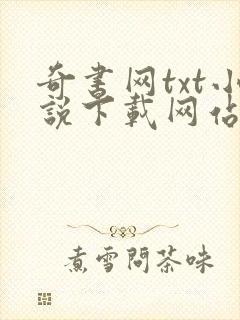 奇書网txt小
說下載网佔
煮雪問茶味